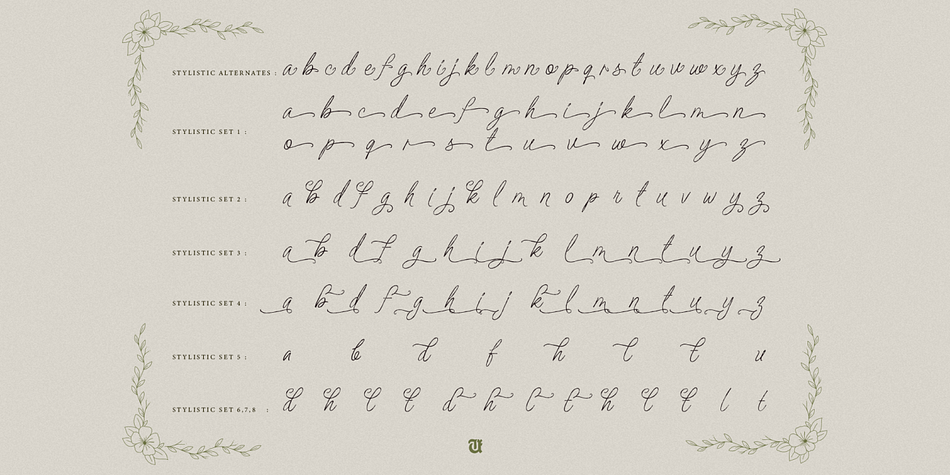 STYLISTIC ALTERNATES : a b c d e f g h i j k l m n o p q r s t u v w x y z
a b c d e f g h i j k l m n
STYLISTIC SET 1 :
o p q r s t u v w x y z
STYLISTIC SET 2 : a b d f g h i j k l m n o p r t u v w y z
STYLISTIC SET 3 : a b d f g h i j k l m n t u y z
STYLISTIC SET 4 : a b d f g h i j k l m n t u y z
STYLISTIC SET 5 : a b d f h l t u
STYLISTIC SET 6,7,8 : d h l t d h l t h l t l t